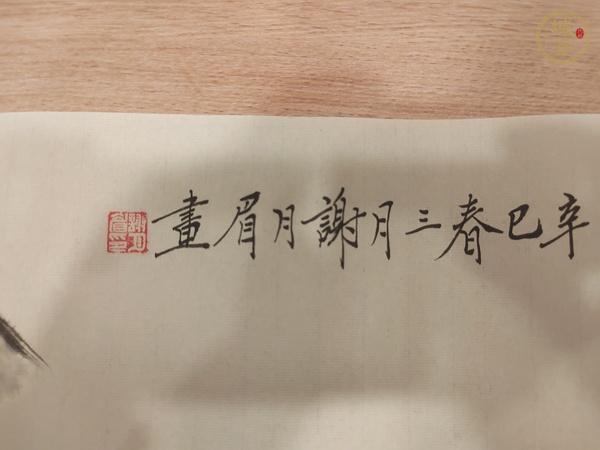 辛巳春三月謝月眉畫